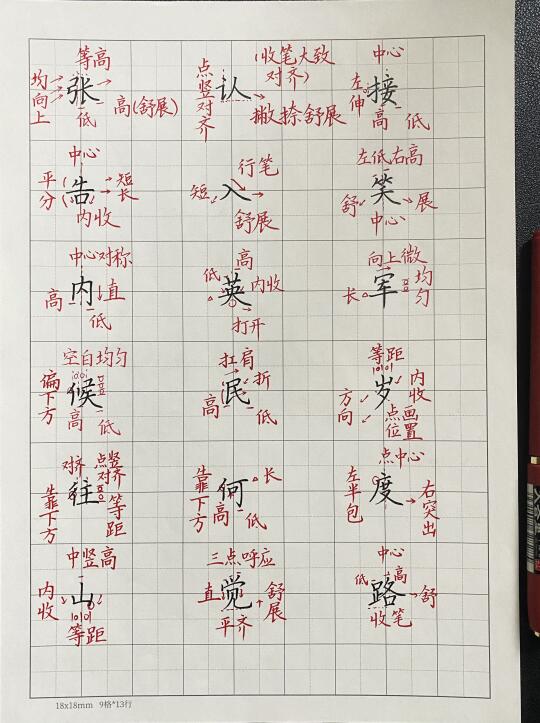 等高
均向上
张
低
高(舒展)
点竖对齐
认
(收笔大致
对齐)
撇捺舒展
中心
左伸
接
高 低
中心
平分
告
短
长
内收
行笔
短
入
舒展
左低右高
舒
笑
展
中心
中心对称
高
内
直
低
高
低
英
内收
打开
向上微
长
军
均匀
空白均匀
偏下方
候
高
低
扛肩
民
折
高
低
等距
方向
岁
内收
点画位置
对齐
点竖对齐
靠下方
往
等距
靠下方
何
长
高
低
点中心
左半包
度
右突出
中竖高
内收
山
等距
三点呼应
直
觉
舒展
平齐
中心
低
高
路
舒
收笔
18x18mm 9格*13行